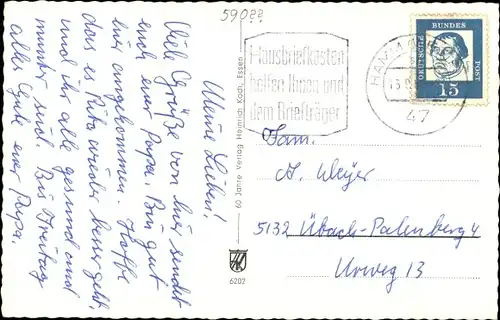 5902a
Meine Lieben!
Viele Grüße von hier sendet
euch euer Papa. Bin gut
hier angekommen. Hoffe
dass es Puto wieder besser geht,
und ihr alle gesund und
munter seid. Bis Freitag
alles Gute euer Papa.
60 Jahre Verlag Heinrich Koch, Essen
6202
Hausbriefkästen
helfen Ihnen und
dem Briefträger
HAMM
47
DEUTSCHE
BUNDES
POST
15
Fam.
J. Weyer
5132 Übach-Palenberg 4
Urweg 13